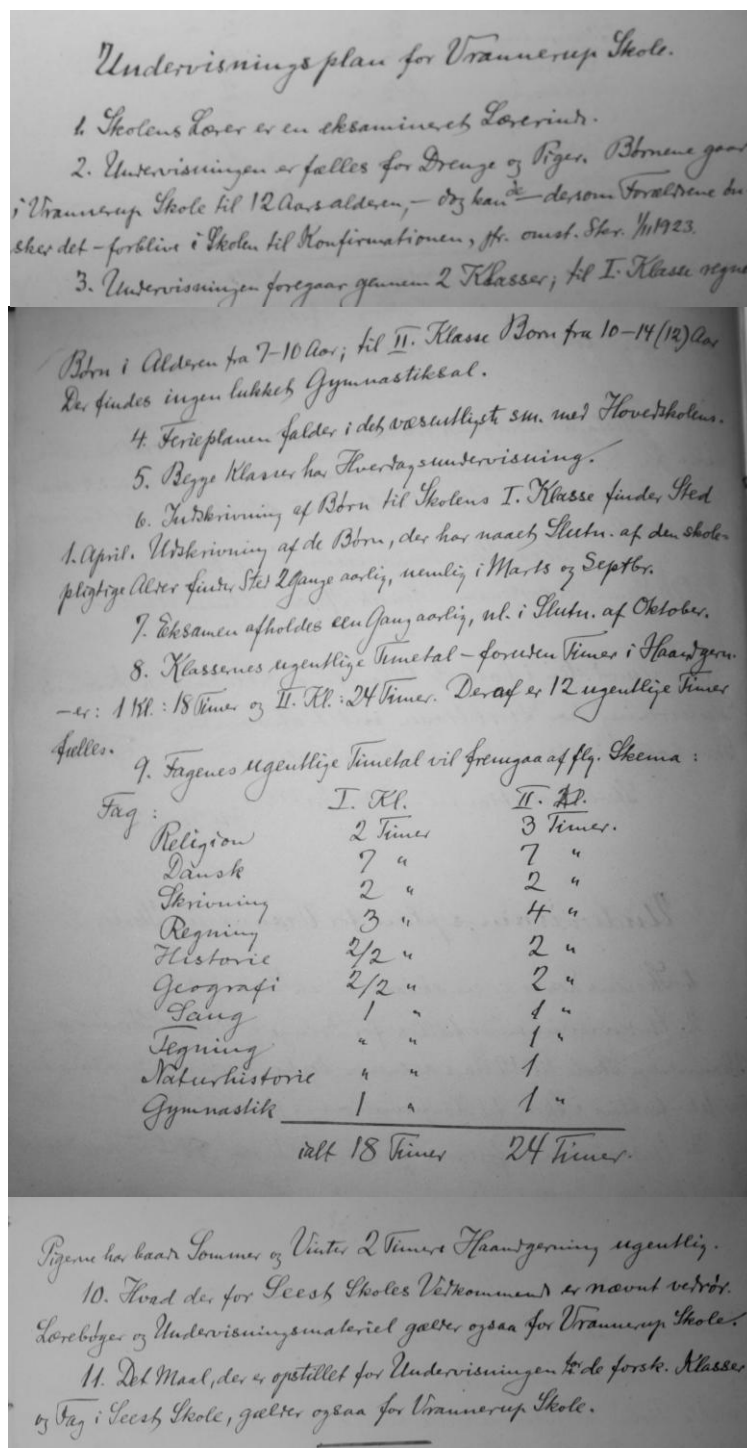 Undervisningsplan for Vrannerup Skole.
1. Skolens Lærer er en eksamineret Lærerinde.
2. Undervisningen er fælles for Drenge og Piger. Børnene gaar
i Vrannerup Skole til 12 Aars alderen, - dog kan de - dersom Forældrene øn
sker det - forblive i Skolen til Konfirmationen, jfr. omst. Skr. 1/11 1923.
3. Undervisningen foregaar gennem 2 Klasser; til I. Klasse regne
Børn i Alderen fra 7-10 Aar; til II. Klasse Børn fra 10-14 (12) Aar
Der findes ingen lukket Gymnastiksal.
4. Ferieplanen falder i det væsentligste sm. med Hovedskolens.
5. Begge Klasser har Hverdagsundervisning.
6. Indskrivning af Børn til Skolens I. Klasse finder Sted
1. April. Udskrivning af de Børn, der har naaet Slutn. af den skole-
pligtige Alder finder Sted 2 Gange aarlig, nemlig i Marts og Septbr.
7. Eksamen afholdes een Gang aarlig, nl. i Slutn. af Oktober.
8. Klassernes ugentlige Timetal - foruden Timer i Haandgern.
- er: 1 Kl.: 18 Timer og II. Kl.: 24 Timer. Deraf er 12 ugentlige Timer
fælles.
9. Fagenes ugentlige Timetal vil fremgaa af flg. Skema:
Fag: I. Kl. II. Kl.
Religion 2 Timer 3 Timer.
Dansk 7 " 7 "
Skrivning 2 " 2 "
Regning 3 " 4 "
Historie 2/2 " 2 "
Geografi 2/2 " 2 "
Sang 1 " 1 "
Tegning " " 1 "
Naturhistorie " " 1
Gymnastik 1 " 1 "
ialt 18 Timer 24 Timer.
Pigerne har baade Sommer og Vinter 2 Timers Haandgerning ugentlig.
10. Hvad der for Seest Skoles Vedkommende er nævnt vedrør.
Lærebøger og Undervisningsmateriel gælder ogsaa for Vrannerup Skole.
11. Det Maal, der er opstillet for Undervisningen for de forsk. Klasser
og Fag i Seest Skole, gælder ogsaa for Vrannerup Skole.